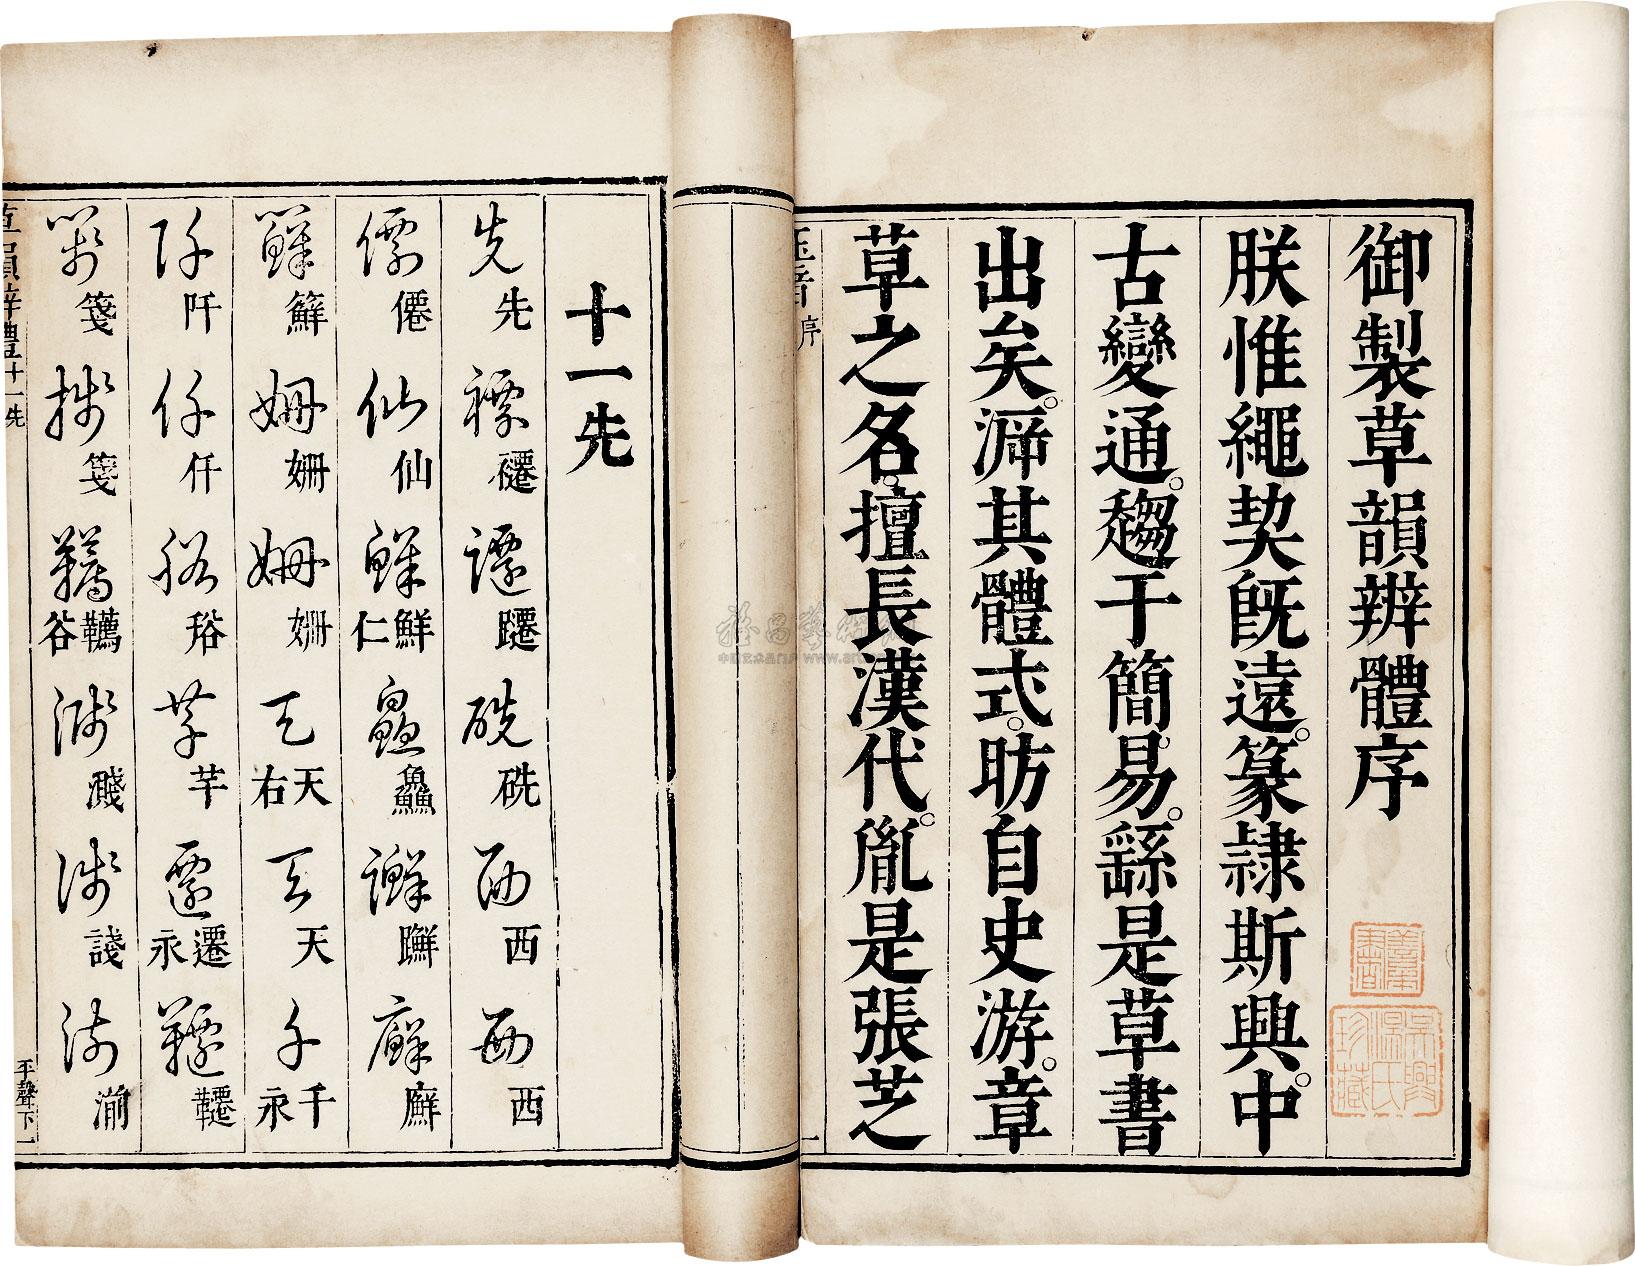 御製草韻辨體序
朕惟繩契旣遠。篆隸斯興。中
古變通。趨于簡易。繇是草書
出矣。泝其體式。昉自史游。章
草之名。擅長漢代。胤是張芝
序
一
十一先
先 褼 躚 硄 西 西
僊 仙 鮮 仁 鱻 廯
姍 姍 天 右 天 千 永
阡 仟 谸 芊 遷 永 韆
箋 牋 韉 谷 濺 諓 湔
草韻辨體 十一先 平聲下一
吳興溫氏珍藏